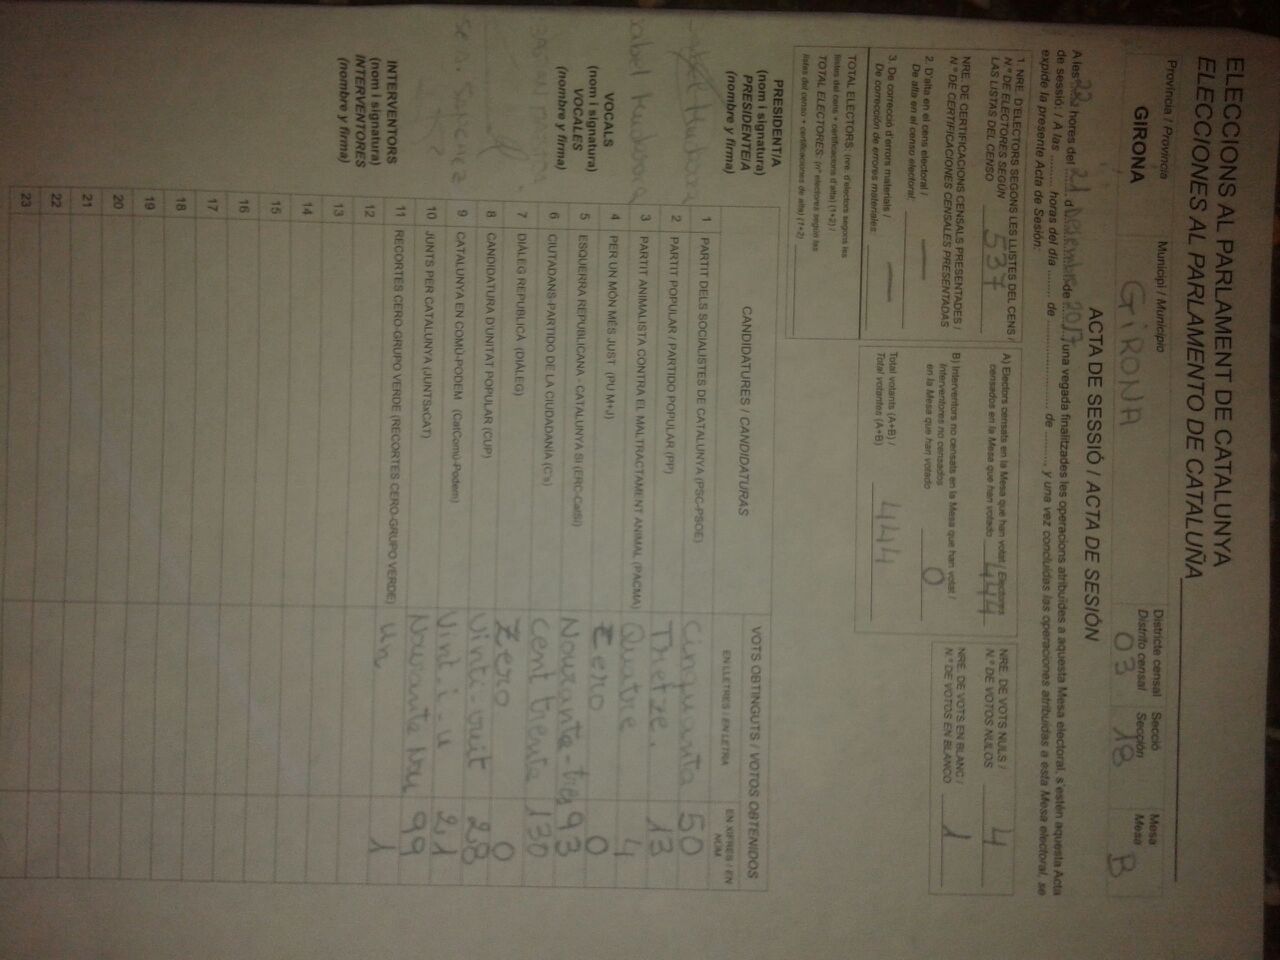 ELECCIONS AL PARLAMENT DE CATALUNYA
ELECCIONES AL PARLAMENTO DE CATALUÑA
Província / Provincia
GIRONA
Municipi / Municipio
GIRONA
Districte censal
Distrito censal
03
Secció
Sección
18
Mesa
Mesa
B
ACTA DE SESSIÓ / ACTA DE SESIÓN
A les 22 hores del 21 d Desembre de 2017 una vegada finalitzades les operacions atribuïdes a aquesta Mesa electoral, s'estén aquesta Acta
de sessió: / A las ........ horas del día ........ de .................... de ........ y una vez concluidas las operaciones atribuidas a esta Mesa electoral, se
expide la presente Acta de Sesión:
1. NRE. D'ELECTORS SEGONS LES LLISTES DEL CENS /
N.º DE ELECTORES SEGÚN
LAS LISTAS DEL CENSO 537
NRE. DE CERTIFICACIONS CENSALS PRESENTADES /
N.º DE CERTIFICACIONES CENSALES PRESENTADAS
2. D'alta en el cens electoral /
De alta en el censo electoral: —
3. De correcció d'errors materials /
De corrección de errores materiales: —
TOTAL ELECTORS: (nre. d'electors segons les
llistes del cens + certificacions d'alta) (1+2) /
TOTAL ELECTORES: (nº electores según las
listas del censo + certificaciones de alta) (1+2)
A) Electors censats en la Mesa que han votat / Electores
censados en la Mesa que han votado 444
B) Interventors no censats en la Mesa que han votat /
Interventores no censados
en la Mesa que han votado 0
Total votants (A+B) /
Total votantes (A+B) 444
NRE. DE VOTS NULS /
N.º DE VOTOS NULOS 4
NRE. DE VOTS EN BLANC /
N.º DE VOTOS EN BLANCO 1
CANDIDATURES / CANDIDATURAS
VOTS OBTINGUTS / VOTOS OBTENIDOS
EN LLETRES / EN LETRA
EN XIFRES / EN NÚM
1 PARTIT DELS SOCIALISTES DE CATALUNYA (PSC-PSOE) Cinquanta 50
2 PARTIT POPULAR / PARTIDO POPULAR (PP) Tretze. 13
3 PARTIT ANIMALISTA CONTRA EL MALTRACTAMENT ANIMAL (PACMA) Quatre 4
4 PER UN MÓN MÉS JUST (PUM+J) Zero 0
5 ESQUERRA REPUBLICANA - CATALUNYA SÍ (ERC-CatSí) Nouranta-tres 93
6 CIUTADANS-PARTIDO DE LA CIUDADANÍA (C's) Cent trenta 130
7 DIÀLEG REPUBLICÀ (DIÀLEG) Zero 0
8 CANDIDATURA D'UNITAT POPULAR (CUP) Vinti-vuit 28
9 CATALUNYA EN COMÚ-PODEM (CatComú-Podem) Vint i u 21
10 JUNTS PER CATALUNYA (JUNTSxCAT) Noranta nou 99
11 RECORTES CERO-GRUPO VERDE (RECORTES CERO-GRUPO VERDE) un 1
12
13
14
15
16
17
18
19
20
21
22
23
PRESIDENT/A
(nom i signatura)
PRESIDENTE/A
(nombre y firma)
VOCALS
(nom i signatura)
VOCALES
(nombre y firma)
INTERVENTORS
(nom i signatura)
INTERVENTORES
(nombre y firma)